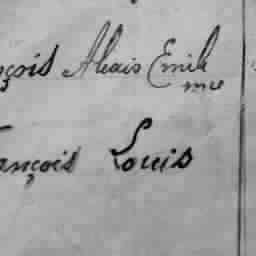 nçois Alexis Emile
me
ançois Louis